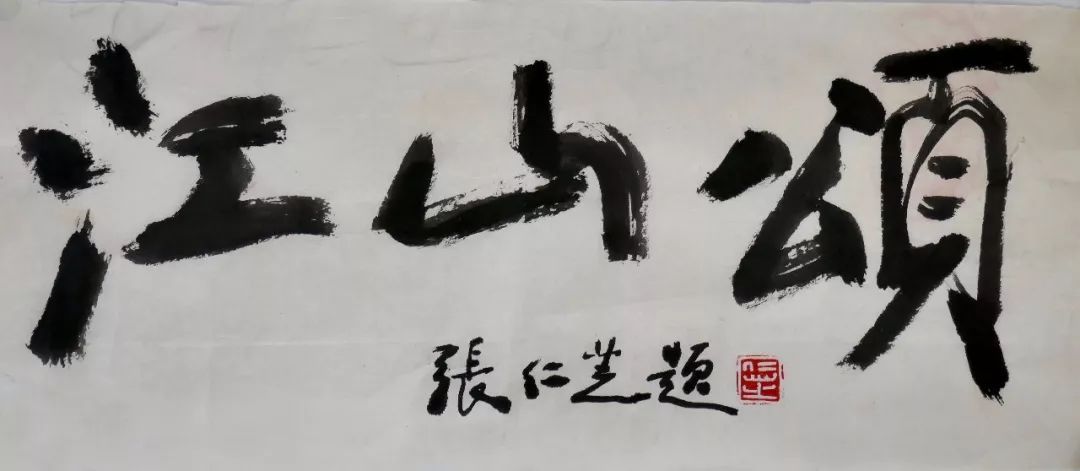 江山頌
張仁芝題
芝